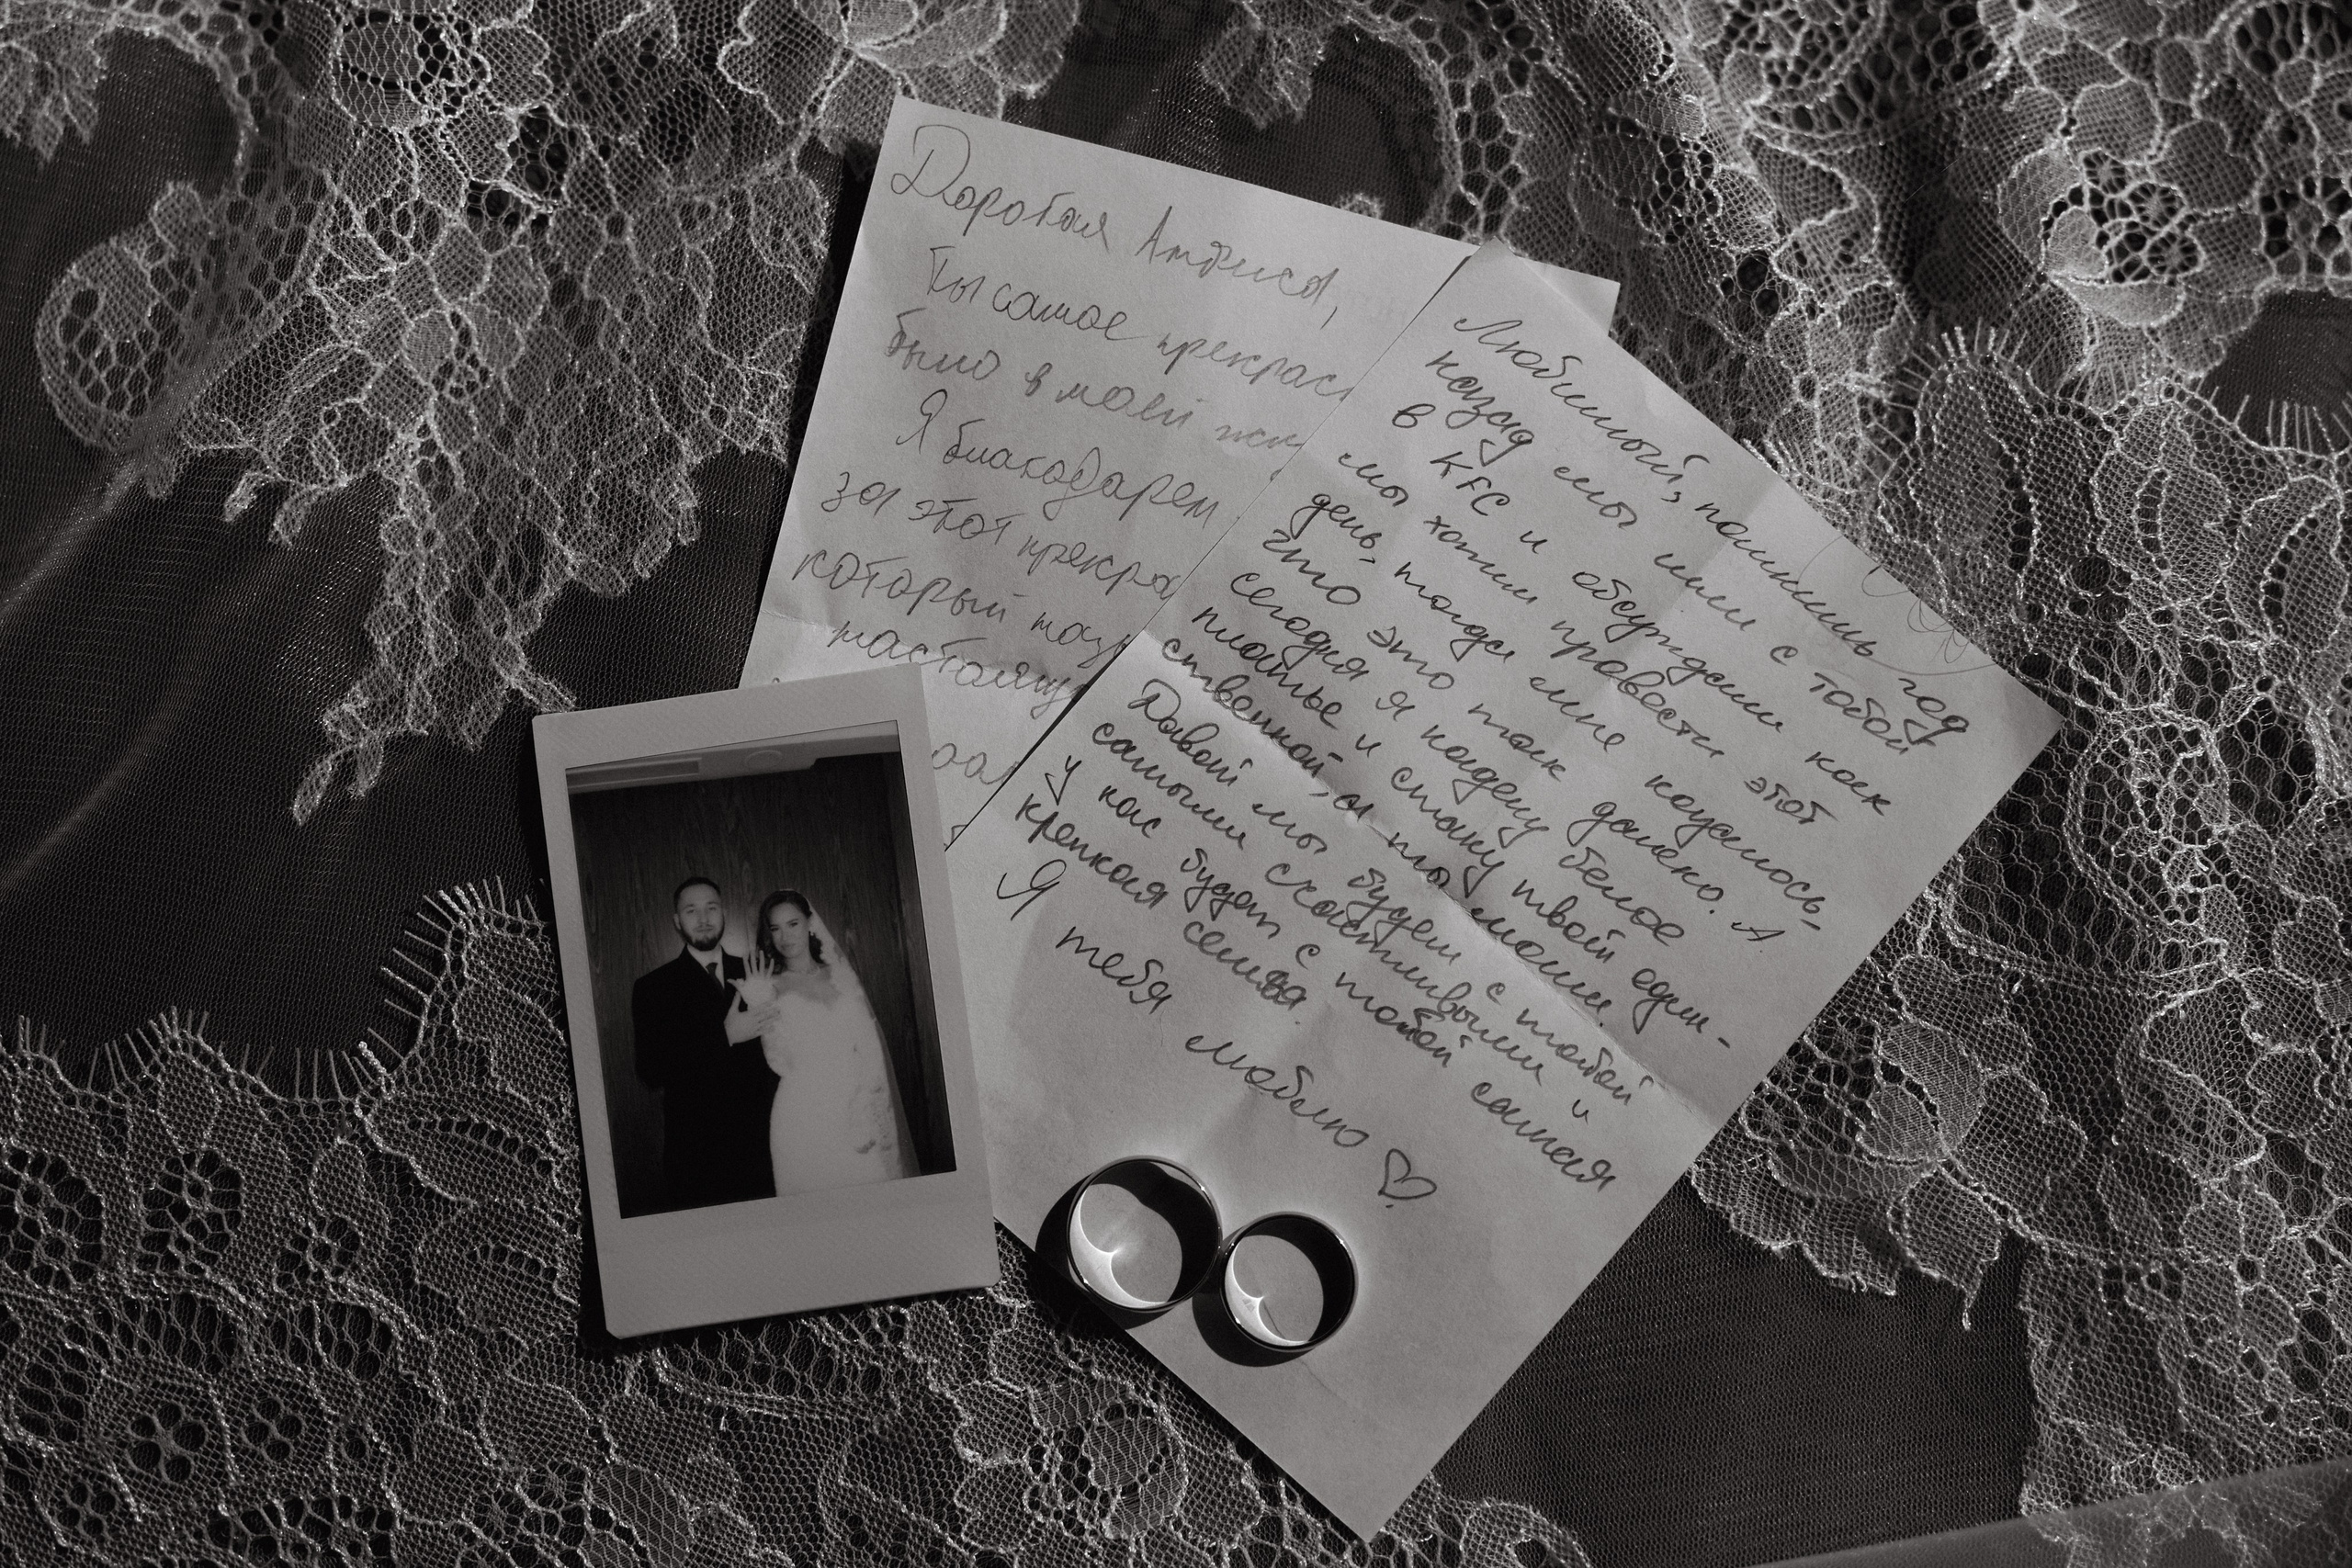 Дорогая Анфиса,
Ты самое прекрас
было в моей жи
Я благодарен
за этот прекра
который
настоящу
Любимый, помнишь год
назад мы шли с тобой
в KFC и обсуждали как
мы хотим провести этот
день, тогда мне казалось,
что это так далеко. А
сегодня я надену белое
платье и стану твоей един-
ственной, а ты моим.
Давай мы будем с тобой
самыми счастливыми и
у нас будет с тобой самая
крепкая семья.
Я тебя люблю ♡